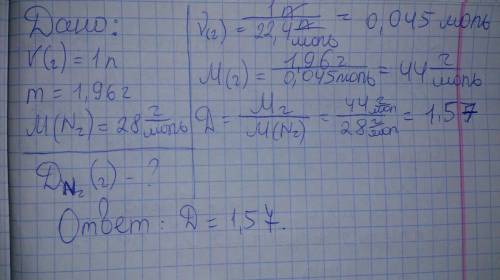 Дано:
V(г) = 1л
m = 1,96г
M(N₂) = 28 г/моль
D_N₂(г) - ?
ν(г) = 1 л / 22,4 л/моль = 0,045 моль
M(г) = 1,96 г / 0,045 моль = 44 г/моль
D = Mг / M(N₂) = 44 г/моль / 28 г/моль = 1,57
Ответ: D = 1,57.